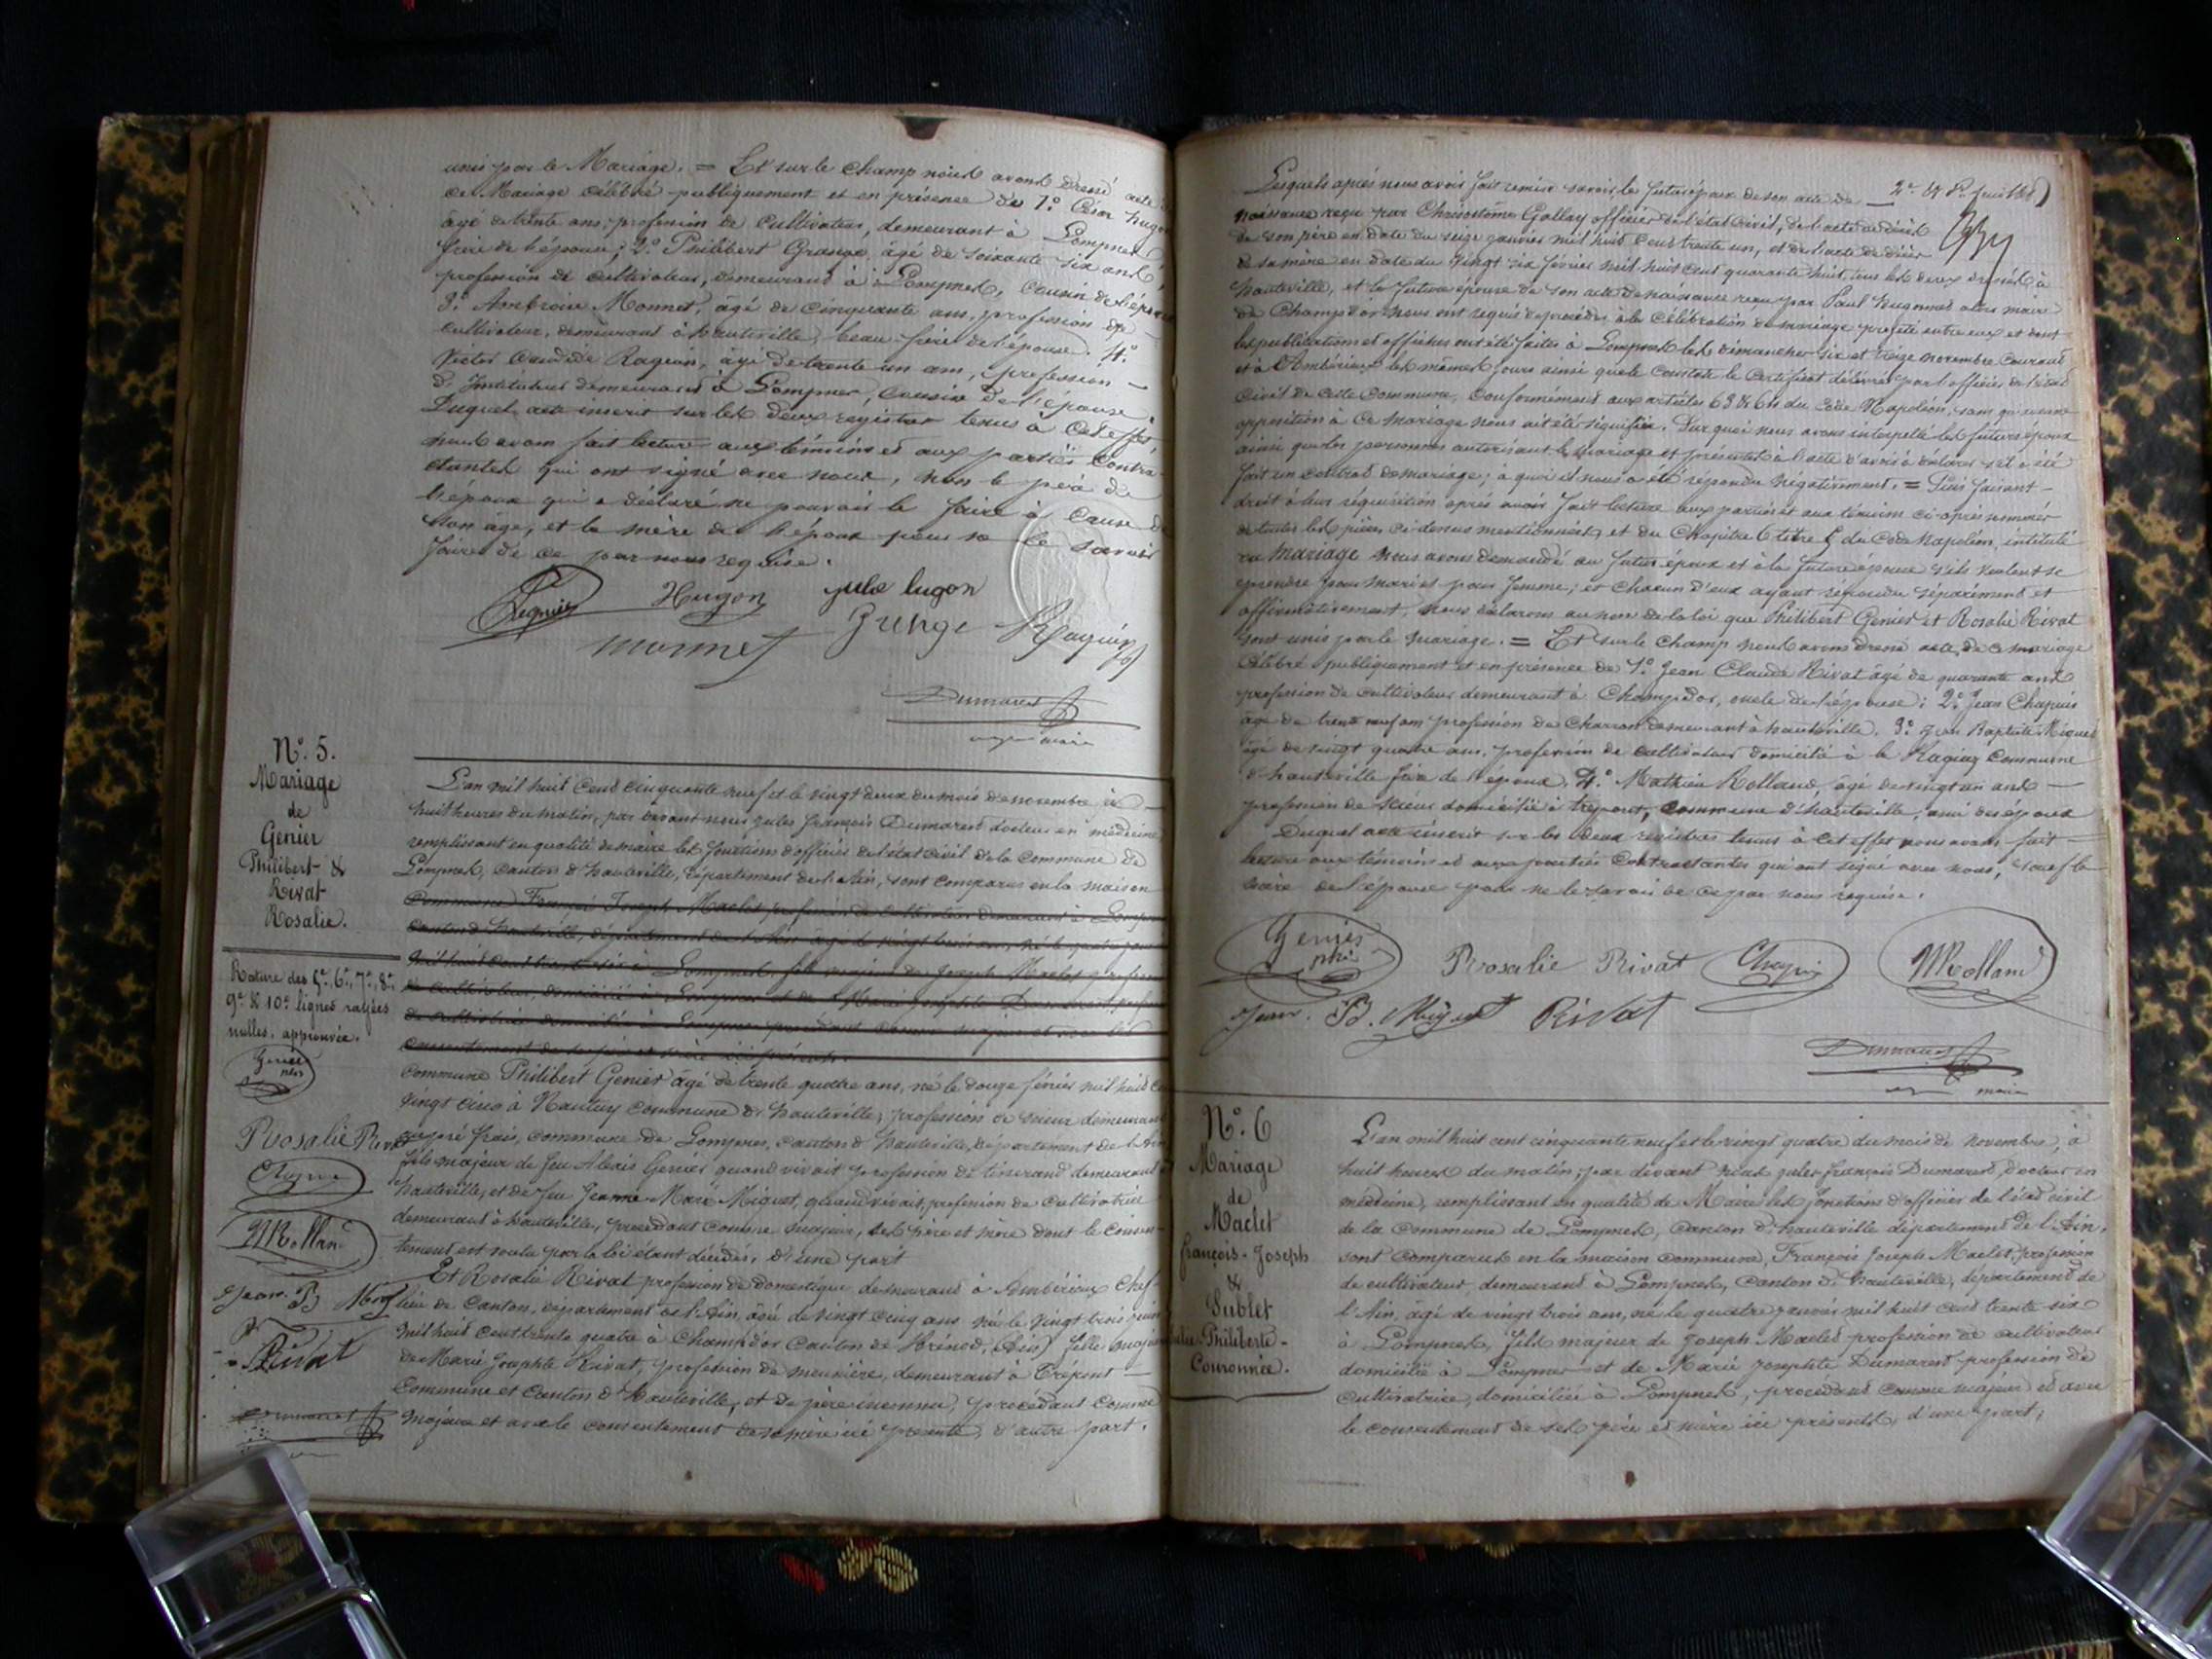 unis par le Mariage. = Et sur le champ nous avons dressé acte de
ce Mariage célébré publiquement et en présence de 1º César hugon
âgé de trente ans, profession de Cultivateur, demeurant à Lompnes
frère de l'épouse; 2º Philibert Grange, âgé de soixante six ans,
profession de cultivateur, demeurant à Lompnes, Cousin de l'épouse
3º Ambroise Monnet, âgé de Cinquante ans, profession de
cultivateur, demeurant à hauteville, beau frère de l'épouse. 4º
Victor Raguin, âgé de trente un ans, profession
d'Instituteur demeurant à Lompnes, Cousin de l'épouse.
Duquel acte inscrit sur les deux registres tenus à Cet effet
nous avons fait lecture aux témoins et aux parties Contra-
ctantes qui ont signé avec nous, non le père de
l'époux qui a déclaré ne pouvoir le faire à Cause de
son âge, et la mère de l'époux pour ne le savoir
faire de ce par nous requise.
Hugon jule hugon
monnet Grenge Raguin
Dumarest
maire
Nº. 5.
Mariage
de
Genier
Philibert &
Rivat
Rosalie.
L'an mil huit Cent Cinquante neuf et le vingt deux du mois de novembre à
huit heures du matin, par devant nous jules françois Dumarest docteur en médecine
remplissant en qualité de maire les fonctions d'officier de l'état civil de la commune de
Lompnes, Canton d'hauteville, département de l'Ain, sont comparus en la maison
Commune François Joseph Maclet profession de Cultivateur demeurant à Lompnes
Canton d'hauteville, département de l'Ain âgé de vingt trois ans, né le quatre janvier
mil huit cent trente six à Lompnes, fils majeur de Joseph Maclet profession
de cultivateur, domicilié à Lompnes et de Marie Josephte Dumarest profession
de cultivatrice domiciliée à Lompnes procédant Comme majeur et avec le
consentement de ses père et mère ici présents.
Rature des 5e, 6e, 7e, 8e,
9e & 10e lignes rayées
nulles, approuvée.
Genier
phi
Rosalie Rivat
Chapuis
MRollan
Jean. B Mig
Rivat
Dumarest
commune Philibert Genier âgé de trente quatre ans, né le douze février mil huit cent
vingt cinq à Nantuy commune d'hauteville, profession de scieur demeurant
au pré frais, commune de Lompnes, canton d'hauteville, département de l'Ain
fils majeur de feu Alexis Genier quand vivait profession de tisserand demeurant à
hauteville, et de feu Jeanne Marie Miguet, quand vivait, profession de Cultivatrice
demeurant à hauteville, procédant comme majeur, ses père et mère dont le consen-
tement est voulu par la loi étant décédés, d'une part
Et Rosalie Rivat profession de domestique demeurant à Ambérieux Chef
lieu de Canton, département de l'Ain, âgée de vingt cinq ans née le vingt trois juin
mil huit cent trente quatre à Champdor Canton de Brénod, (Ain) fille majeure
de Marie Josephte Rivat, profession de meunière, demeurant à Trépont
Commune et Canton d'hauteville, et de père inconnu, procédant Comme
majeure et avec le consentement de sa mère ici présente, d'autre part.
Lesquels après nous avoir fait remise savoir le futur époux de son acte de
naissance reçu par Chrisostôme Gallay officier de l'état civil, de l'acte de décès
de son père en date du seize janvier mil huit cent trente un, et de l'acte de décès
de sa mère en date du vingt six février mil huit cent quarante huit, tous les deux décédés à
hauteville, et la future épouse de son acte de naissance reçu par Paul hugonnet alors maire
de Champdor nous ont requis de procéder à la Célébration du mariage projeté entre eux et dont
les publications et affiches ont été faites à Lompnes les dimanches six et treize novembre courant
et à Ambérieux les mêmes jours ainsi que le constate le Certificat délivré par l'officier de l'état
civil de cette commune, Conformément aux articles 63 & 64 du Code Napoléon, sans qu'aucune
opposition à ce mariage nous ait été signifiée. Sur quoi nous avons interpellé les futurs époux
ainsi que les personnes autorisant le mariage et présentes à l'acte d'avoir à déclarer s'il a été
fait un contrat de mariage; à quoi il nous a été répondu négativement. = Puis faisant
droit à leur réquisition après avoir fait lecture aux parties et aux témoins ci-après nommés
de toutes les pièces ci-dessus mentionnées, et du Chapitre 6 titre 5 du Code Napoléon, intitulé
du mariage nous avons demandé au futur époux et à la future épouse s'ils veulent se
prendre pour mari et pour femme; et chacun d'eux ayant répondu séparément et
affirmativement, nous déclarons au nom de la loi que Philibert Genier et Rosalie Rivat
sont unis par le mariage. = Et sur le champ nous avons dressé acte de ce mariage
Célébré publiquement et en présence de 1º Jean Claude Rivat âgé de quarante ans
profession de cultivateur demeurant à Champdor, oncle de l'épouse; 2º Jean Chapuis
âgé de trente neuf ans profession de charron demeurant à hauteville. 3º Jean Baptiste Miguet
âgé de vingt quatre ans, profession de cultivateur domicilié à la Ragiaz Commune
d'hauteville frère de l'époux. 4º Mathieu Rolland, âgé de vingt un ans
profession de scieur domicilié à trépont, commune d'hauteville, ami des époux
Duquel acte inscrit sur les deux registres tenus à cet effet nous avons fait
lecture aux témoins et aux parties Contractantes qui ont signé avec nous, sauf la
mère de l'épouse pour ne le savoir de ce par nous requise.
Genier
phi
Rosalie Rivat Chapuis MRolland
Jean. B. Miguet Rivat
Dumarest
maire
Nº. 6
Mariage
de
Maclet
françois-Joseph
&
Sublet
Philiberte-
Couronnée.
L'an mil huit cent cinquante neuf et le vingt quatre du mois de novembre, à
huit heures du matin, par devant nous jules françois Dumarest, docteur en
médecine, remplissant en qualité de Maire les fonctions d'officier de l'état civil
de la commune de Lompnes, canton d'hauteville département de l'Ain,
sont comparus en la maison commune, François Joseph Maclet, profession
de cultivateur, demeurant à Lompnes, Canton d'hauteville, département de
l'Ain, âgé de vingt trois ans, né le quatre janvier mil huit cent trente six
à Lompnes, fils majeur de Joseph Maclet profession de cultivateur
domicilié à Lompnes et de Marie Josephte Dumarest profession de
Cultivatrice, domiciliée à Lompnes, procédant comme majeur et avec
le consentement de ses père et mère ici présents, d'une part;